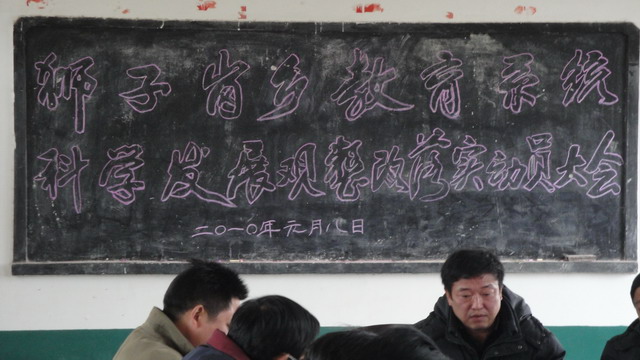 狮子岗乡教育系统
科学发展观整改落实动员大会
二〇一〇年元月八日